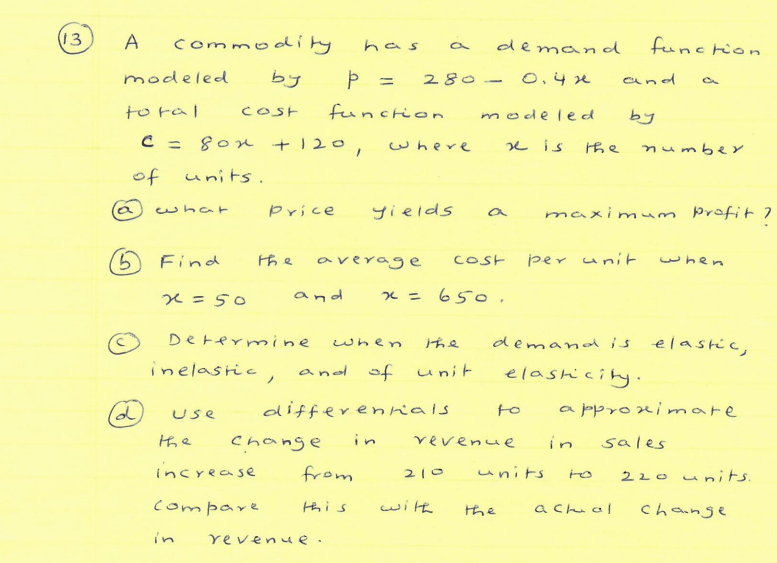 (13) A commodity has a demand function
modeled by p = 280 - 0.4x and a
total cost function modeled by
C = 80x + 120, where x is the number
of units.
(a) what price yields a maximum profit?
(b) Find the average cost per unit when
x = 50 and x = 650.
(c) Determine when the demand is elastic,
inelastic, and of unit elasticity.
(d) use differentials to approximate
the change in revenue in sales
increase from 210 units to 220 units.
Compare this with the actual change
in revenue.